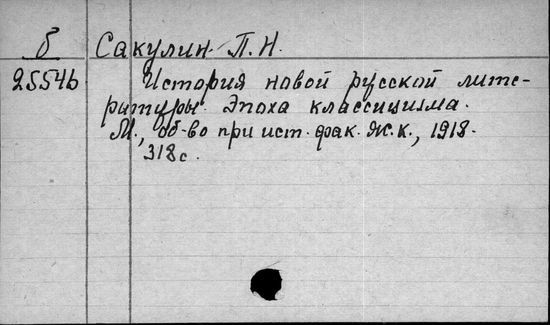 б Сакулин П.Н.
25546 История новой русской лите-
ратуры. Эпоха классицизма.
М., об-во при ист. фак. Ж.К., 1918.
318 с.